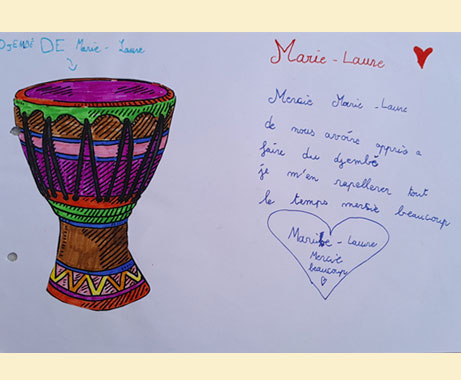 DJEMBÉ DE Marie - Laure
Marie - Laure
Mercie Marie - Laure
de nous avoire appris a
faire du djembé
je m'en rapellerer tout
le temps mercie beaucoup
Marie - Laure
Mercie
beaucoup